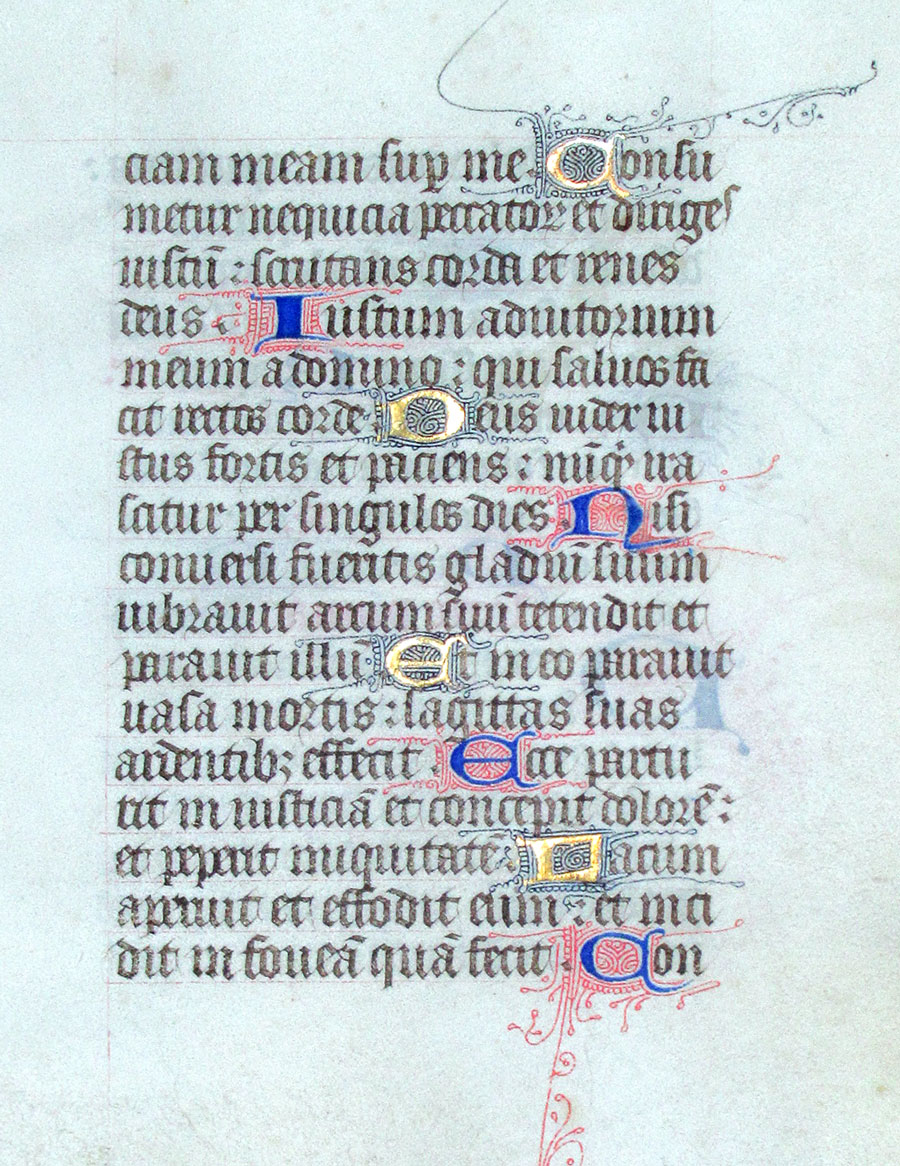 ciam meam sup̱ me. Consu
metur nequicia peccatoꝝ et diriges
iustū : scrutans corda et renes
deus. Iustum adiutorium
meum a domino : qui saluos fa
cit rectos corde. Deus iudex iu
stus fortis et paciens : nūq̄ ira
scitur per singulos dies. Nisi
conuersi fueritis gladiū suum
uibrauit arcum suū tetendit et
parauit illū. Et in eo parauit
uasa mortis : sagittas suas
ardentibꝫ effecit. Ecce partu
rit iniusticiā et concepit dolorē :
et peperit iniquitatē. Lacum
aperuit et effodit eum : et inci
dit in foueā quā fecit. Con